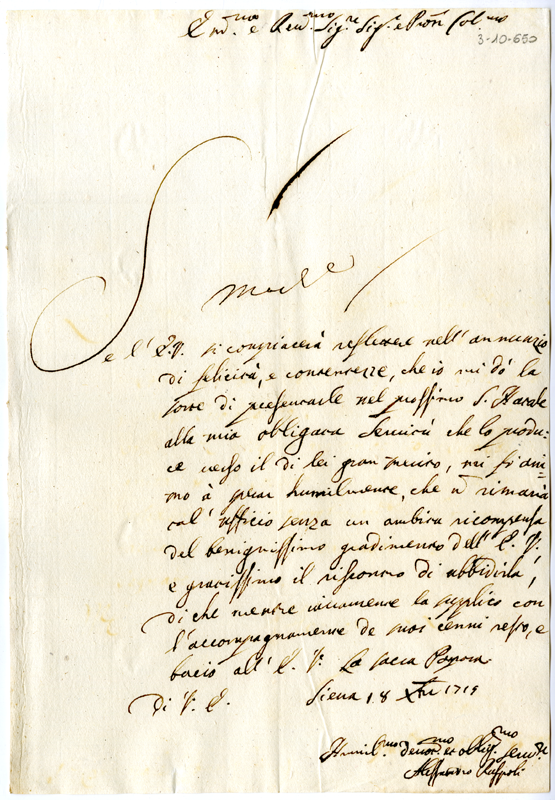 Em.mo e Rev.mo Sig.re Sig.r e Pron Col.mo
3-10-650
Se l'E.V. si compiacerà reflettere nell'annunzio
di felicità, e contentezze, che io mi dò la
sorte di presentarle nel prossimo S. Natale
alla mia obligata Servitù che lo produ=
ce verso il di lei gran merito, mi fò ani=
mo à sperar humilmente, che n rimarrà
tal' ufficio senza un ambita ricompensa
del benignissimo gradimento dell' E. V.
e gratissimo il riscontro di ubbidirla,
di che mentre vivamente la supplico con
l'accompagnamento de suoi cenni resto, e
bacio all' E. V. La sacra Porpora
Di V. E. Siena 18 Xbre 1719
Humil.mo Devot.mo et oblig.mo Serv.re
Alessandro Ruspoli